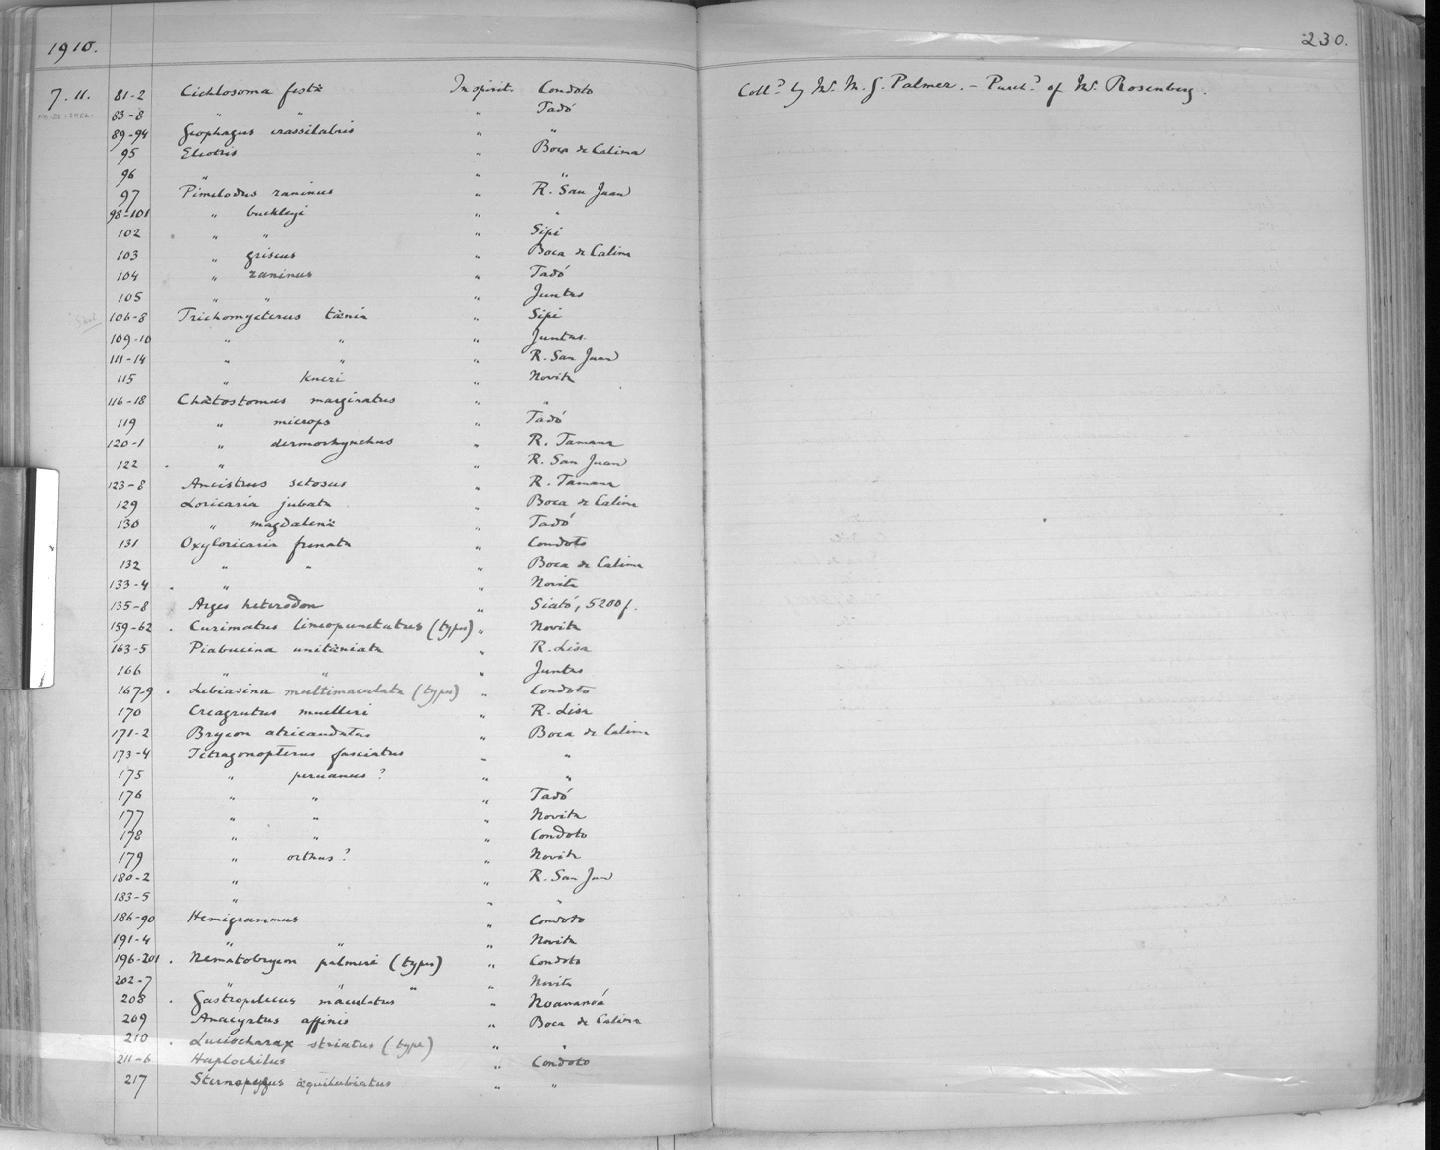 1910.
230.
7.11. 81-2 Cichlosoma festæ In spirit. Condoto Coll.d by Mr. M. G. Palmer. - Purch.d of Mr. Rosenberg.
83-8 " " " Tadó
89-94 Geophagus crassilabris " "
95 Eleotris " Boca de Calima
96 " " "
97 Pimelodus raninus " R. San Juan
98-101 " buckleyi " "
102 " " " Sipi
103 " griseus " Boca de Calima
104 " raninus " Tadó
105 " " " Juntas
106-8 Trichomycterus tænia " Sipi
109-10 " " " Juntas.
111-14 " " " R. San Juan
115 " kneri " Novita
116-18 Chætostomus marginatus " "
119 " microps " Tadó
120-1 " dermorhynchus " R. Tamana
122 " " R. San Juan
123-8 Ancistrus setosus " R. Tamana
129 Loricaria jubata " Boca de Calima
130 " magdalenæ " Tadó
131 Oxyloricaria frenata " Condoto
132 " " " Boca de Calima
133-4 " " Novita
135-8 Arges heterodon " Siató, 5200 f.
159-62 Curimatus lineopunctatus (types) " Novita
163-5 Piabucina unitæniata " R. Lisa
166 " " " Juntas
167-9 Lebiasina multimaculata (types) " Condoto
170 Creagrutus muelleri " R. Lisa
171-2 Brycon atricaudatus " Boca de Calima
173-4 Tetragonopterus fasciatus " "
175 " peruanus ? " "
176 " " " Tadó
177 " " " Novita
178 " " " Condoto
179 " orthus ? " Novita
180-2 " " R. San Jun
183-5 " " "
186-90 Hemigrammus " Condoto
191-4 " " " Novita
196-201 Nematobrycon palmeri (types) " Condoto
202-7 " " " " Novita
208 Gastropelecus maculatus " Noananoá
209 Anacyrtus affinis " Boca de Calima
210 Luciocharax striatus (type) " "
211-6 Haplochilus " Condoto
217 Sternopygus æquilabiatus " "